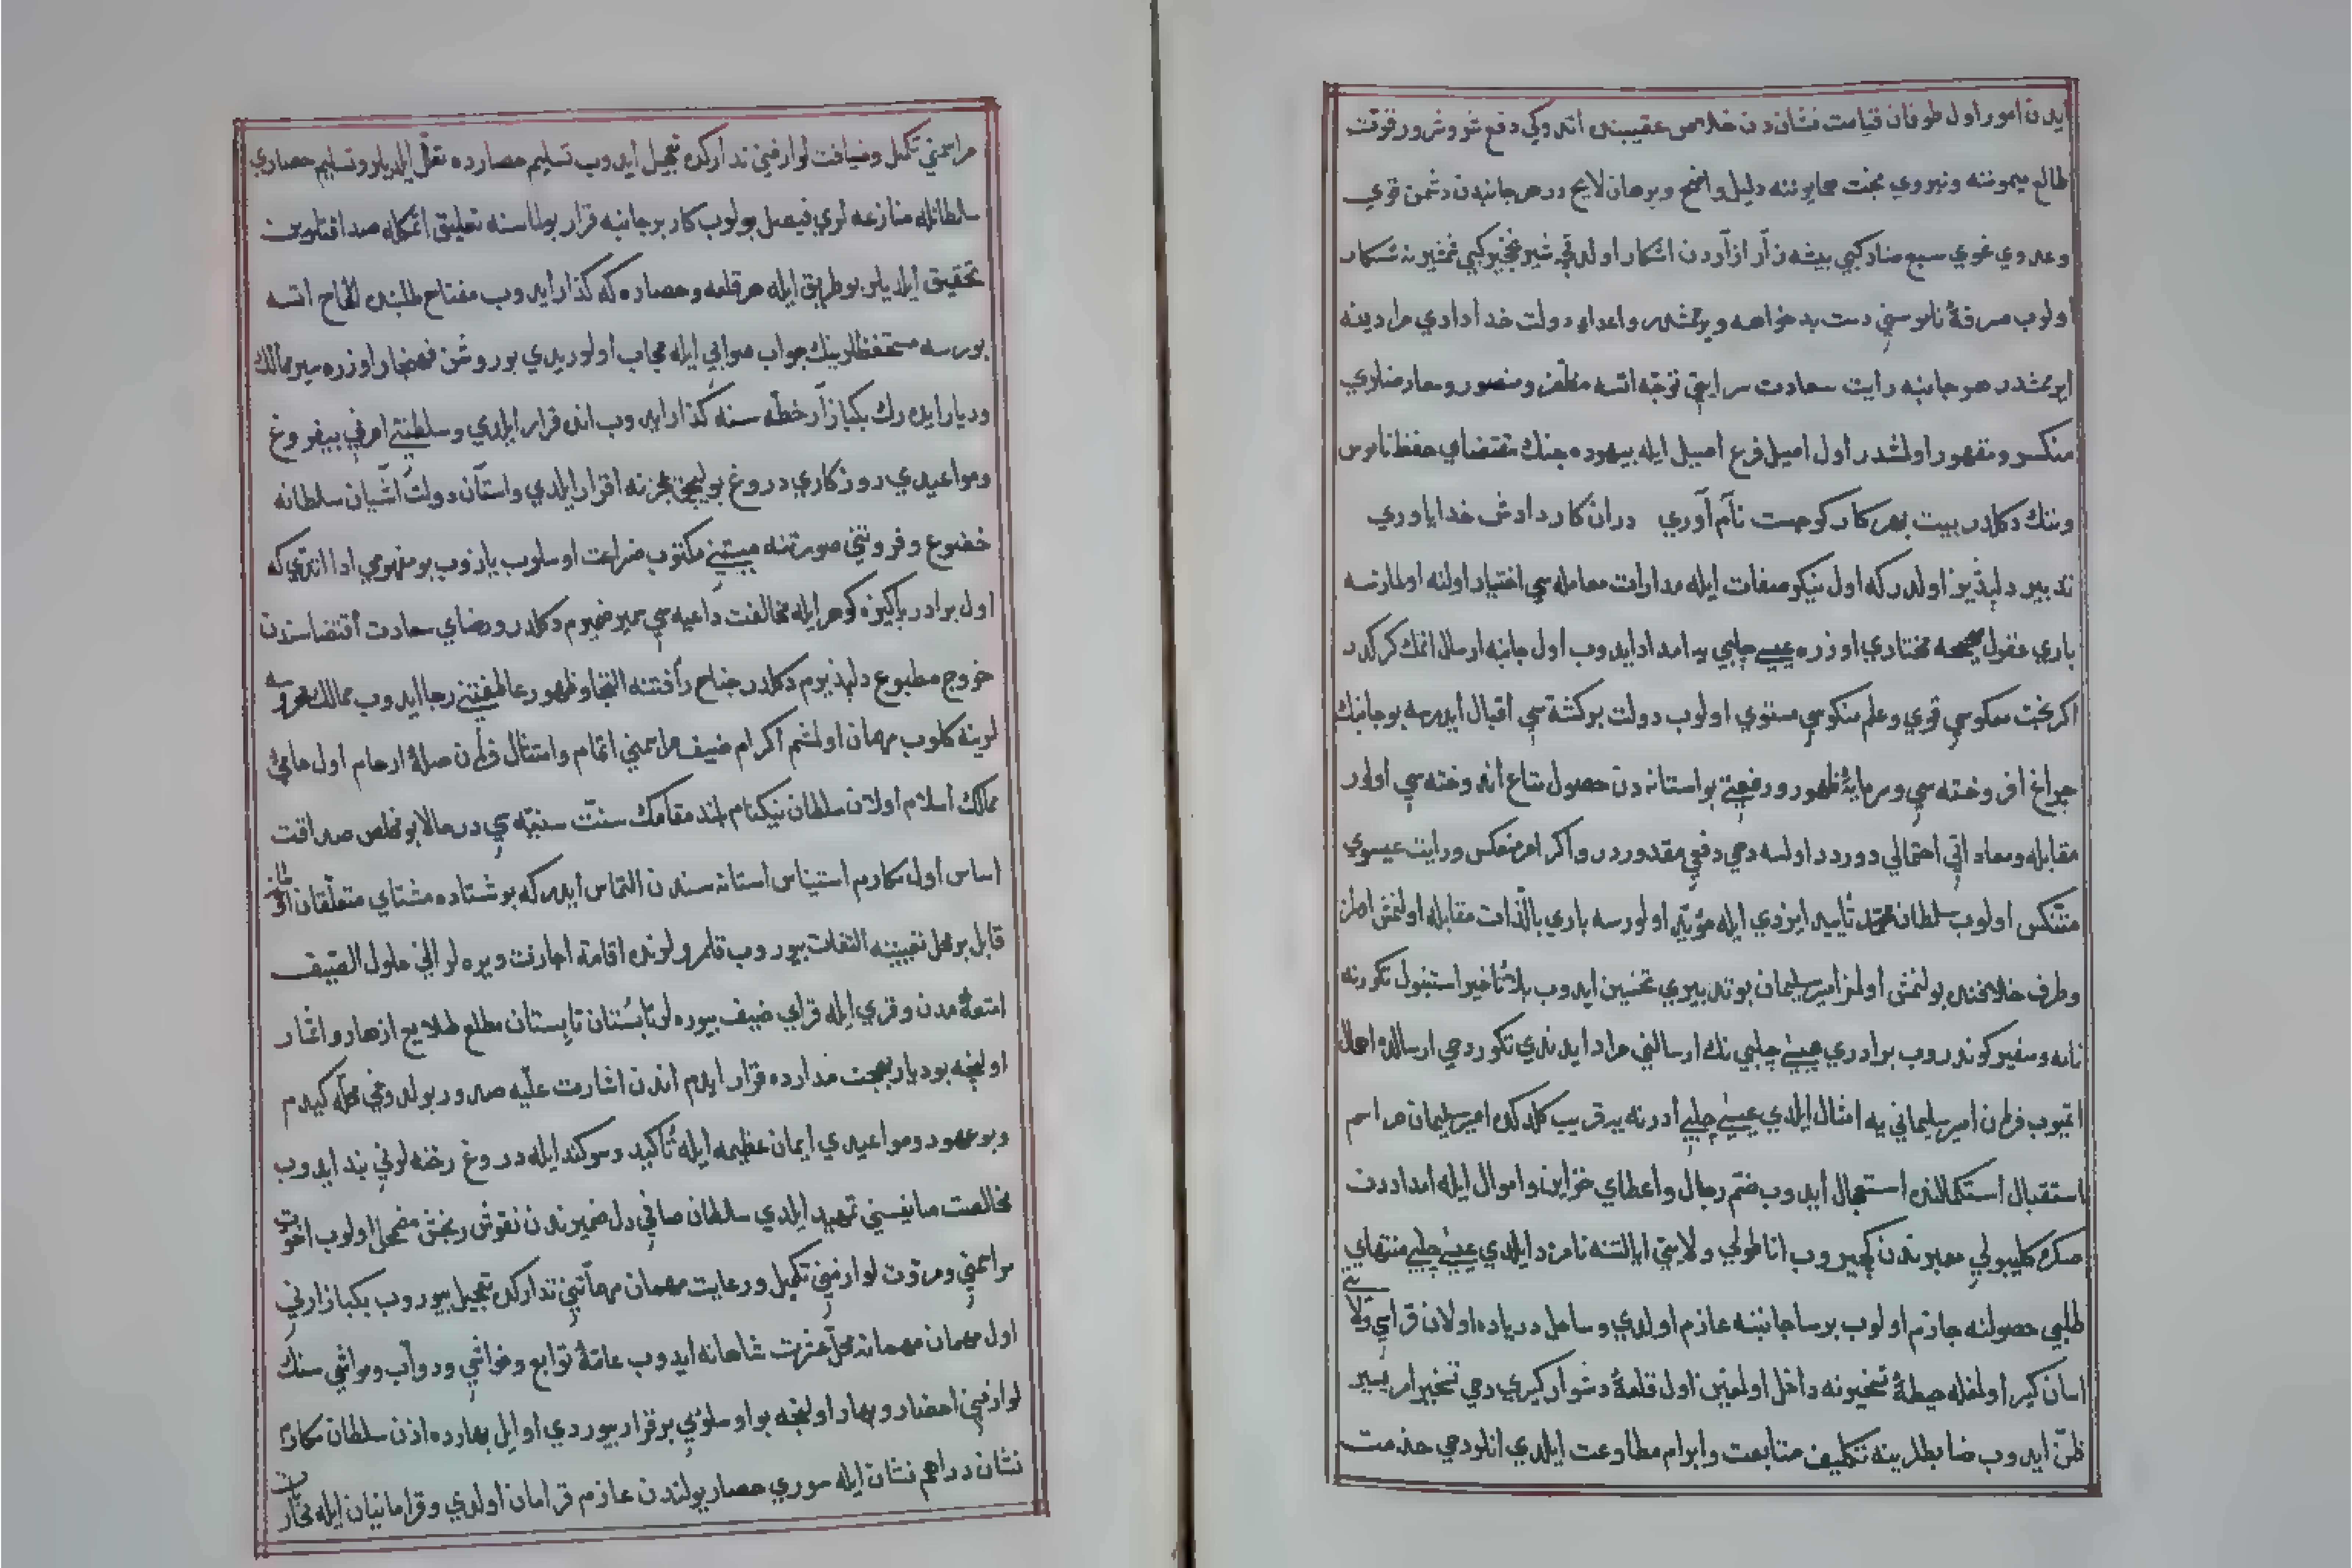 ايدن امور اول طوفان قيامت نشاندن خلاص عقيبنده اتدوكي دفع شور وشر ورقوقت
طالع ميموننه ونيروي بخت همايوننه دليل واضح وبرهان لايح در هر جانبدن دشمن قوي
وعدوي غوي سبع ضار كبي بيشه زار ازاردن اشكار اولدقچه شير نخجير كبي شمشيرنه شكار
اولوب صرفهٔ ناموسني دست بدخواهه ويرمشدر واعداء دولت خداداداري مرادينه
ايرمشدر هر جانبه رايت سعادت سرايتي توجه اتسه مظفر ومنصور ومعارضلري
منكسر ومقهور اولمشدر اول اصيل فرع اصيل ايله بيهوده جنك مقتضاي حفظ ناموس
وننك دكلدر بيت بهر كار كو جست نام آوري دران كار دادش خدا ياوري
تدبير دلپذير اولدر كه اول نيكو صفات ايله مدارات معامله سي اختيار اولنه اولمازسه
باري عقول مختاري اوزره عيسى چلبي يه امداد ايدوب اول جانبه ارسال اتمك كركدر
اكر بخت معكوسي قوي وعلم منكوسي مستوي اولوب دولت بركشته سي اقبال ايدرسه بو جانبك
چراغ افروخته سي وسرمايهٔ ظهور ورفعتي بو استانه دن حصول متاع اندوخته سي اولور
مقابله ومعاداتي احتمالي دوردر اولسه دخي دفعي مقدوردر واكر امر منعكس ورايت عيسوي
منتكس اولوب سلطان محمد تأييد ايزدي ايله مؤيد اولورسه باري بالذات مقابله اولنمش اولمز
وطرف خلافنده بولنمش اولمز امير سليمان بو تدبيري تحسين ايدوب بلا تأخير استنبول تكورنه
نامه وسفير كوندروب برادري عيسى چلبي نك ارسالني مراد ايدندي تكور دخي ارسالده اهمال
اتميوب فرمان امير سليماني يه امتثال ايلدي عيسى چلبي ادرنه يه قريب كلدكده امير سليمان مراسم
استقبال استكمالنده استعجال ايدوب ضم رجال واعطاي خزاين واموال ايله امداددن
صكره كليبولي معبرندن كچيروب اناطولي ولايتي ايالتنه نامزد ايلدي عيسى چلبي منتهاي
طلبي حصولنه جازم اولوب برسا جانبنه عازم اولدي وساحل درياده اولان قراسي ولايتي
اسان كير اولمغله حيطهٔ تسخيرنه داخل اولمغين اول قلعهٔ دشوار كيري دخي تسخير امر يسير
ظن ايدوب ضابطلرينه تكليف متابعت وابرام مطاوعت ايلدي انلر دخي خدمت
مراسمني تكميل وضيافت لوازمني تداركده تعجيل ايدوب تسليم حصارده تعلل ايلديلر وتسليم حصاري
سلطانله منازعه لري فيصل بولوب كار بر جانبه قرار بولماسنه تعليق اتمكله صداقتلرين
تحقيق ايلديلر بو طريق ايله هر قلعه وحصاره كه كذار ايدوب مفتاح طلبنده الحاح اتسه
بورسه مستحفظلرينك جواب صوابي ايله مجاب اولوريدي بو روشن هنجار اوزره سير ممالك
وديار ايده رك بكبازار خطه سنه كذار ايدوب انده قرار ايلدي وسلطنتي امرني بيفروغ
ومواعيدي روزكاري دروغ بوليجق عجزنه اقرار ايلدي واستان دولت اشيان سلطانه
خضوع وفروتني صورتنه مبتني مكتوب ضراعت اوسلوب يازوب بو مفهومي ادا اتدي كه
اول برادر پاكيزه كوهر ايله مخالفت داعيه سي سمير ضميرم دكلدر ورضاي سعادت اقتضاسندن
خروج مطبوع دلپذيرم دكلدر جناح رأفتنه التجا وظهور عاطفتني رجا ايدوب ممالك محروسه
لرينه كلوب مهمان اولمشم اكرام ضيف مراسمني اتمام وامتثال فرمان صلهٔ ارحام اول حامئ
ممالك اسلام اولان سلطان نيكنام بلند مقامك سنت سنيه سي در حالا بو مخلص صداقت
اساس اول مكارم استيناس استانه سندن التماس ايدر كه بو شتاده مشتاي متعلقان اولمغه
قابل بر محل تعييننه التفات بيوروب قلمرولرنده اقامته اجازت ويره لر الي حلول الصيف
امتعهٔ مدن وقري ايله قراي ضيف بيوره لر تابستان تابستان مطلع طلايع ازهار واثمار
اولنجه بو ديار بهجت مدارده قرار ايدم اندن اشارت عليه صدور بولدوغي محله كيدم
وبو عهود ومواعيدي ايمان عظيمه ايله تأكيد وسوكند ايله دروغ رخنه لرني بند ايدوب
مخالصت مبانيسني تمهيد ايلدي سلطان صافي دل ضميرندن نقوش رنجش مضمحل اولوب اخوت
مراسمني ومروت لوازمني تكميل ورعايت مهمان مهماتني تداركده تعجيل بيوروب بكبازاريني
اول مهمان مهمانه محل عزت شاهانه ايدوب عامهٔ توابع وحواشي ودواب ومواشي سنك
لوازمني احضار وبهار اولنجه بو اوسلوبي برقرار بيوردي اوايل بهارده اذن سلطان مكارم
نشان دراهم نشان ايله سوري حصار يولندن عازم قرامان اولدي وقرامانيان ايله محاربات